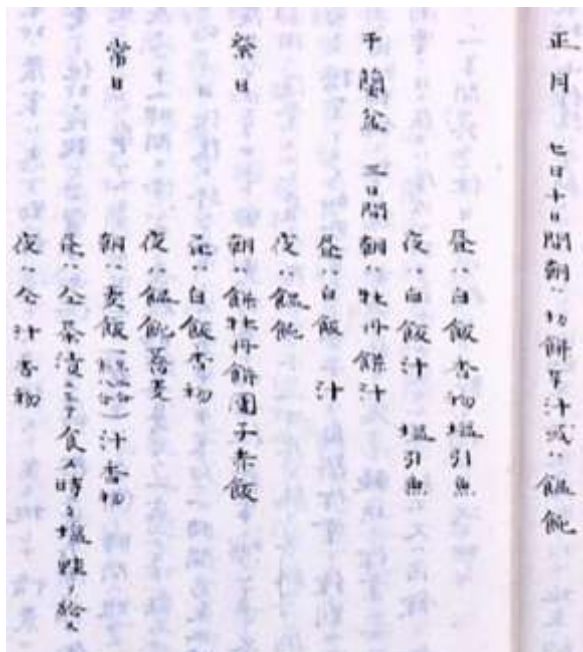 正月 七日十日間朝ハ切餅芋汁或ハ饂飩
昼ハ白飯香物塩引魚
夜ハ白飯汁 塩引魚
于蘭盆 三日間朝ハ牡丹餅汁
昼ハ白飯 汁
夜ハ饂飩
祭日 朝ハ餅牡丹餅団子赤飯
昼ハ白飯香物
夜ハ饂飩蕎麦
常日 朝ハ麦飯 汁香物
昼ハ仝茶漬ニテ食ス時々塩 ヲ給ス
夜ハ仝汁香物